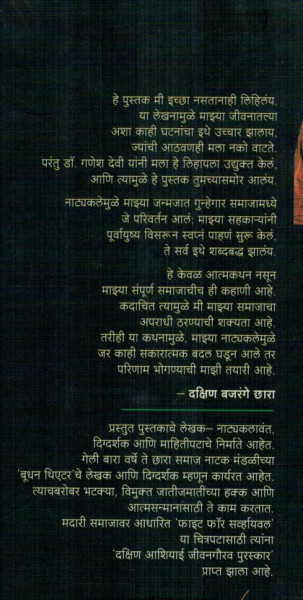 हे पुस्तक मी इच्छा नसतानाही लिहिलंय.
या लेखनामुळे माझ्या जीवनातल्या
अशा काही घटनांचा इथे उच्चार झालाय,
ज्यांची आठवणही मला नको वाटते.
परंतु डॉ. गणेश देवी यांनी मला हे लिहायला उद्युक्त केलं,
आणि त्यामुळे हे पुस्तक तुमच्यासमोर आलंय.
नाट्यकलेमुळे माझ्या जन्मजात गुन्हेगार समाजामध्ये
जे परिवर्तन आलं; माझ्या सहकाऱ्यांनी
पूर्वायुष्य विसरून स्वप्नं पाहणं सुरू केलं,
ते सर्व इथे शब्दबद्ध झालंय.
हे केवळ आत्मकथन नसून
माझ्या संपूर्ण समाजाचीच ही कहाणी आहे.
कदाचित त्यामुळे मी माझ्या समाजाचा
अपराधी ठरण्याची शक्यता आहे.
तरीही या कथनामुळे, माझ्या नाट्यकलेमुळे
जर काही सकारात्मक बदल घडून आले तर
परिणाम भोगण्याची माझी तयारी आहे.
– दक्षिण बजरंगे छारा
प्रस्तुत पुस्तकाचे लेखक— नाट्यकलावंत,
दिग्दर्शक आणि माहितीपटाचे निर्माते आहेत.
गेली बारा वर्षे ते छारा समाज नाटक मंडळीच्या
'बूधन थिएटर'चे लेखक आणि दिग्दर्शक म्हणून कार्यरत आहेत.
त्याचबरोबर भटक्या, विमुक्त जातीजमातींच्या हक्क आणि
आत्मसन्मानासाठी ते काम करतात.
मदारी समाजावर आधारित 'फाइट फॉर सर्व्हायवल'
या चित्रपटासाठी त्यांना
'दक्षिण आशियाई जीवनगौरव पुरस्कार'
प्राप्त झाला आहे.